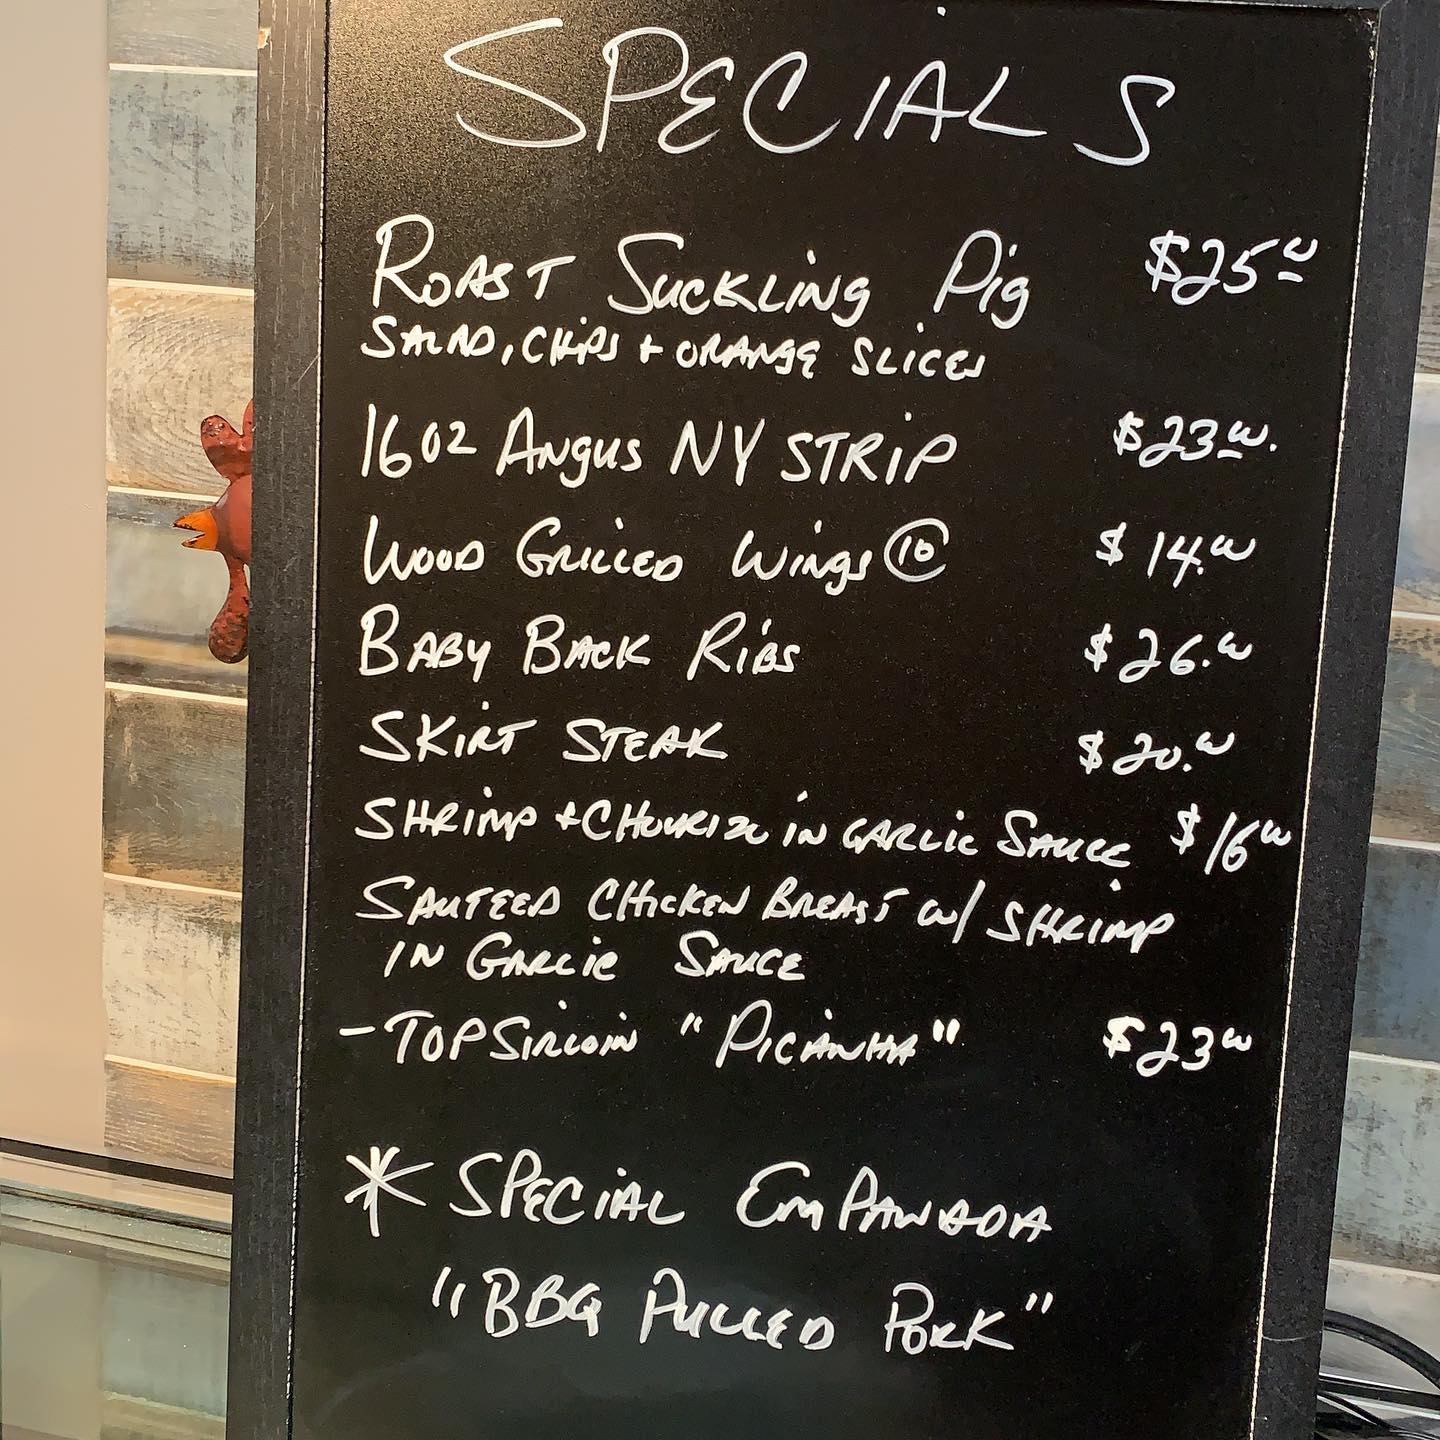 SPECIALS
ROAST SUCKLING Pig $25.00
SALAD, CHIPS + ORANGE SLICES
16oz ANgus NY STRIP $23.00.
WOOD GRILLED WiNgs (10) $14.00
BABY BACK RiBS $26.00
SKIRT STEAK $20.00
SHRIMP + CHOURIZO iN GARLIC SAUCE $16.00
SAUTEED CHICKEN BREAST w/ SHRIMP
IN GARLIC SAUCE
- TOP SIRLOIN "PICANHA" $23.00
* SPECIAL EMPANADA
"BBQ PULLED PORK"